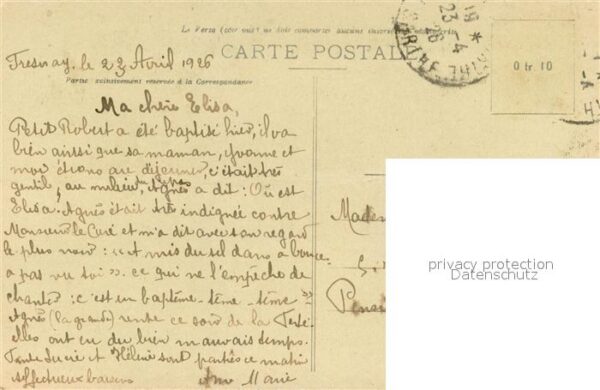 Le Verso (côté vue) ne doit comporter aucune
CARTE POSTALE
Partie exclusivement réservée à la Correspondance
Fresnay, le 23 Avril 1926
Ma chère Elisa,
Petit Robert a été baptisé hier, il va
bien ainsi que sa maman, Yvonne et
moi étions au déjeuner, c'était très
gentil, au milieu du repas
Agnès a dit : Où est
Elisa. Agnès était très indignée contre
Monsieur le Curé et m'a dit avec son regard
le plus noir : « A mis du sel dans a bouce
a pas vu toi ». ce qui ne l'empêche de
chanter : c'est un baptême - tême - tême »
Agnès (la grande) rentre ce soir de la
elles ont eu du bien mauvais temps.
Tante Lucie et Hélène sont parties ce matin
affectueux baisers
Marie
23 - 4
26
SARTHE
0 fr. 10
Made
Pensi
privacy protection
Datenschutz